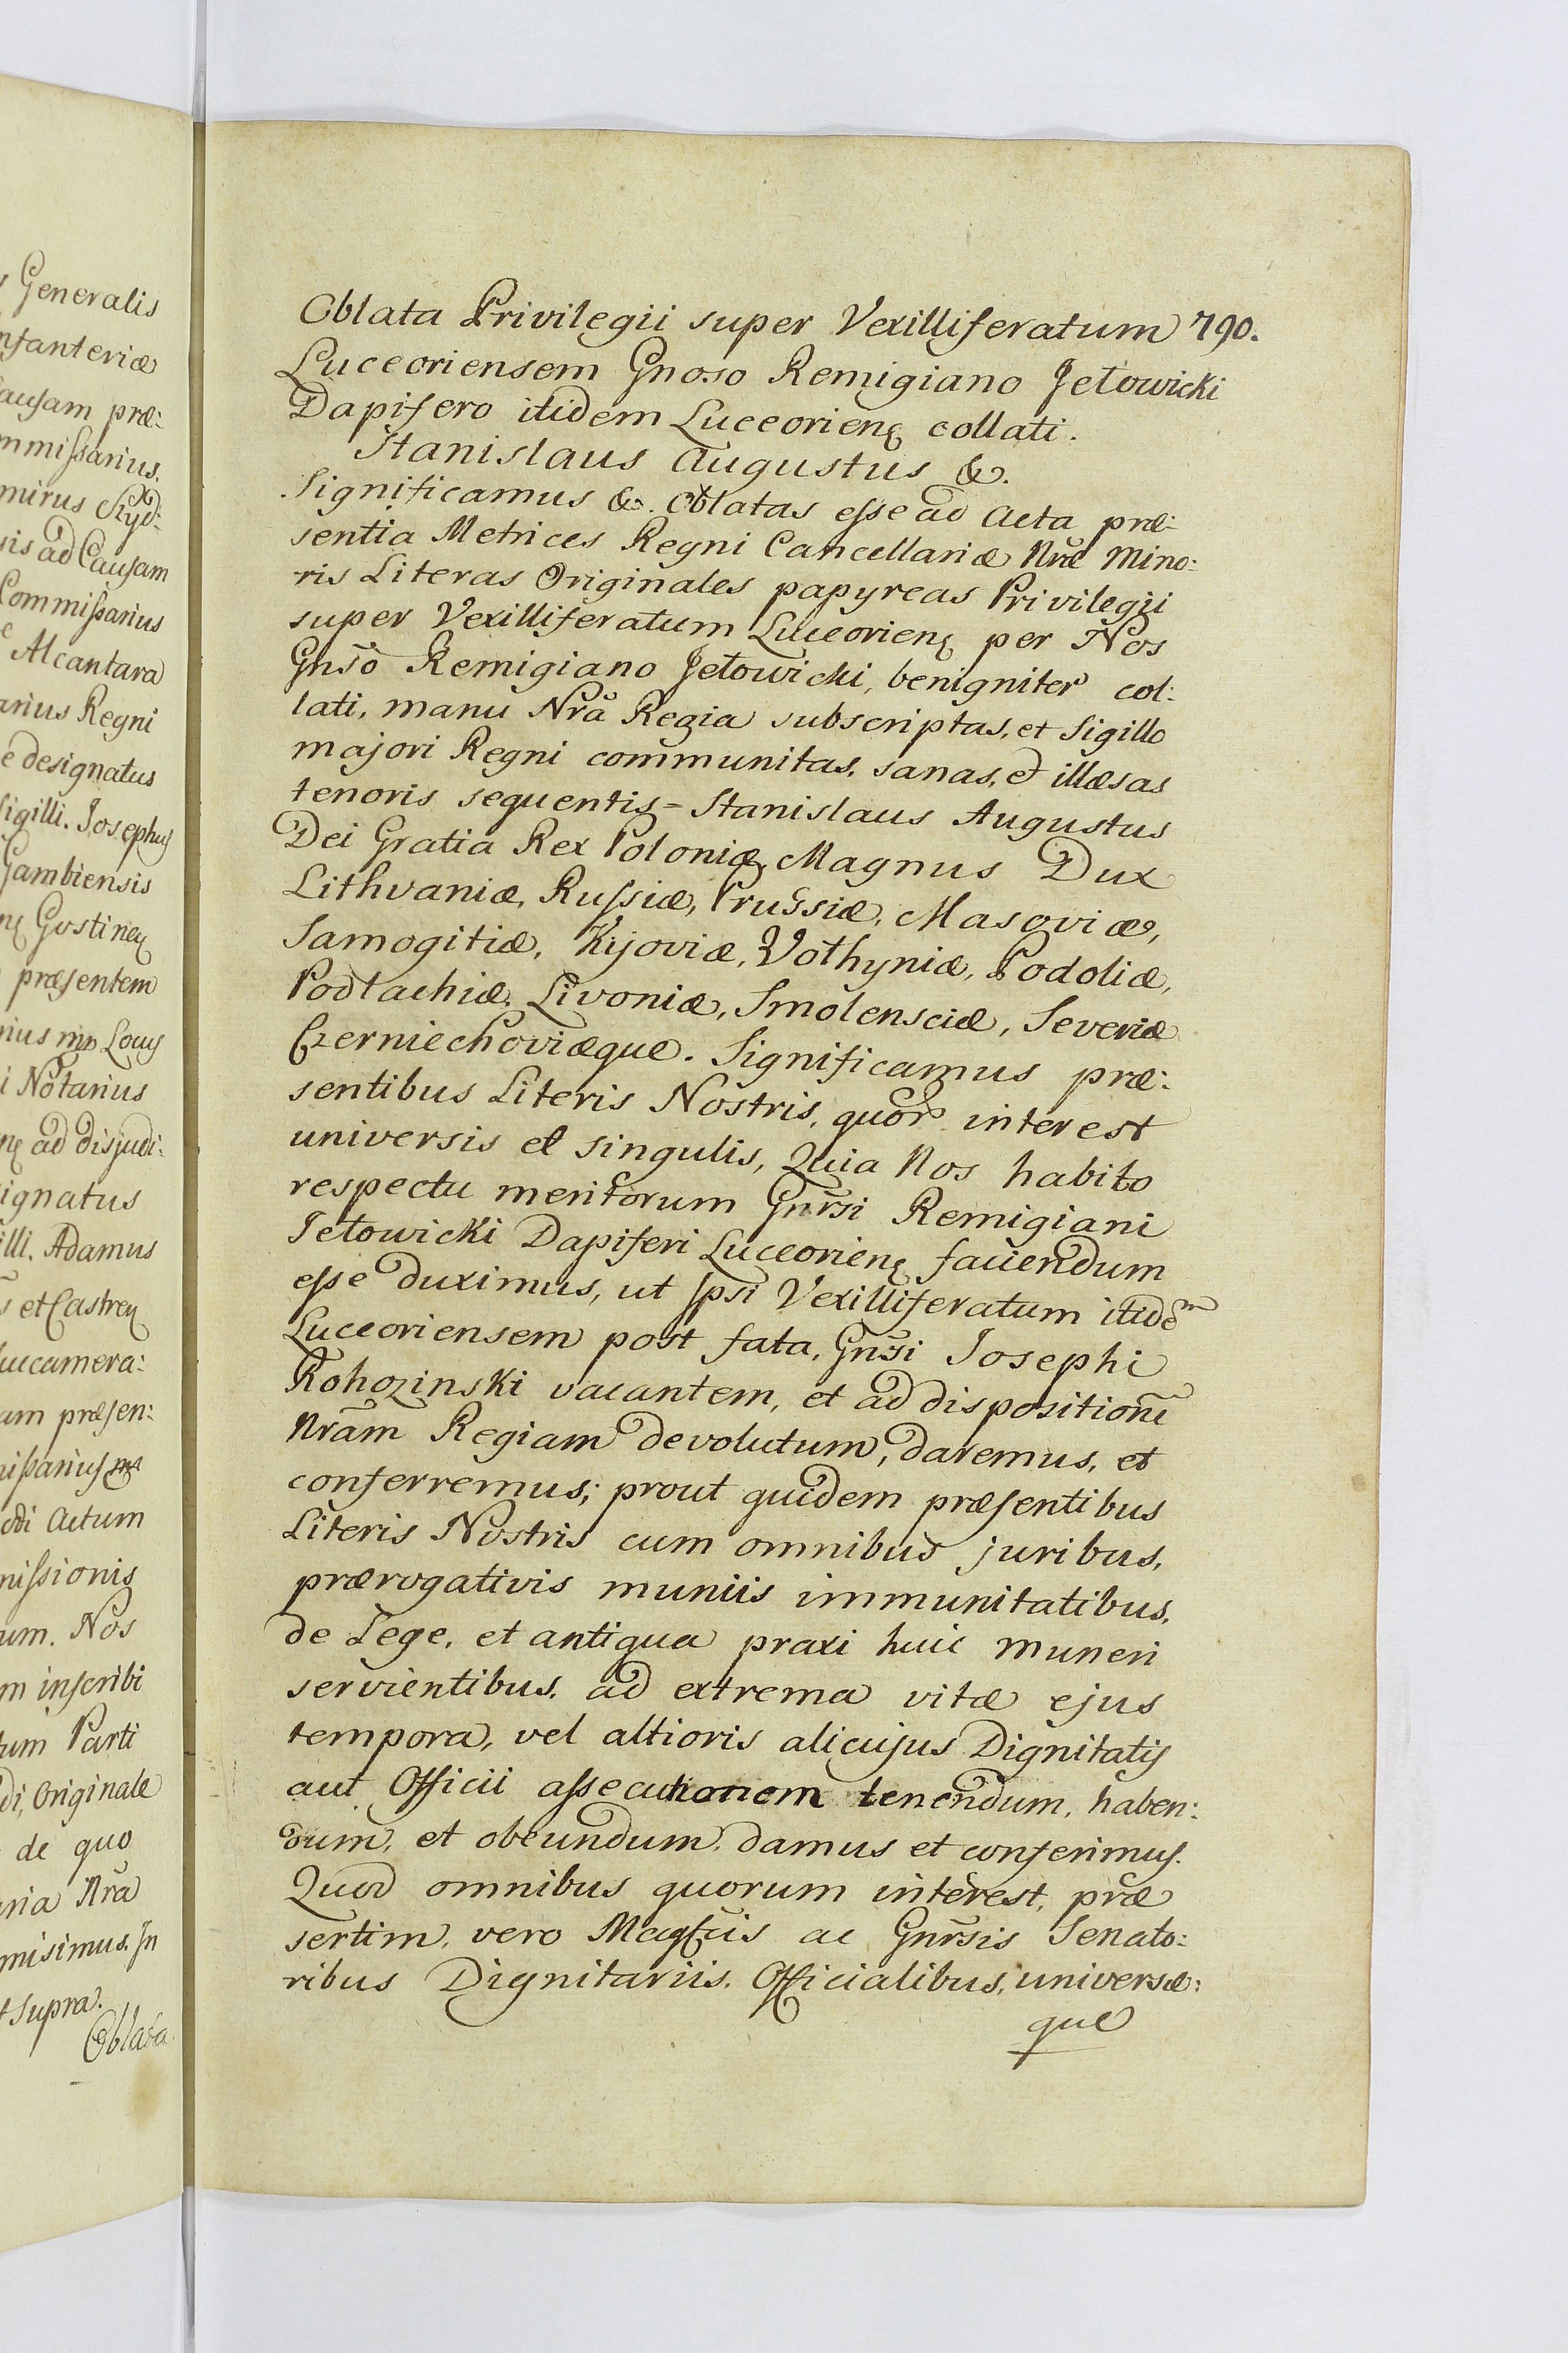 Generalis
nfanteriæ
ausam præ:
mmissarius.
mirus
sis ad Causam
Commissarius
Alcantara
arius Regni
e designatus
Sigilli. Josephus
Gambiensis
Gostinen
præsentem
nius mp Locus
i Notarius
ad disjudi:
ignatus
illi. Adamus
et Castren
uccamera:
am præsen:
missarius mp
odi Actum
missionis
um. Nos
m inscribi
tum Parti
di, Originale
de quo
ria Nrã
misimus. In
t supra.
Oblata
Oblata Privilegii super Vexilliferatum 790.
Luceoriensem Gnoso Remigiano Jełowicki
Dapifero itidem Luceorien collati.
Stanislaus Augustus &.
Significamus &. Oblatas esse ad Acta præ:
sentia Metrices Regni Cancellariæ Nræ Mino:
ris Literas Originales papyreas Privilegii
super Vexilliferatum Luceorien per Nos
Gnso Remigiano Jełowicki, benigniter col:
lati, manu Nrã Regia subscriptas, et Sigillo
majori Regni communitas, sanas, et illæsas
tenoris sequentis = Stanislaus Augustus
Dei Gratia Rex Poloniæ, Magnus Dux
Lithvaniæ, Russiæ, Prussiæ, Masoviæ,
Samogitiæ, Kijoviæ, Vołhyniæ, Podoliæ,
Podlachiæ, Livoniæ, Smolensciæ, Severiæ
Czerniechoviæque. Significamus præ:
sentibus Literis Nostris, quor interest
universis et singulis, Quia Nos habito
respectu meritorum Gnrsi Remigiani
Jełowicki Dapiferi Luceorien faciendum
esse duximus, ut Ipsi Vexilliferatum itidẽm
Luceoriensem post fata, Gnrsi Josephi
Rohozinski vacantem, et ad dispositionẽ
Nrãm Regiam devolutum, daremus, et
conferremus; prout quidem præsentibus
Literis Nostris cum omnibus juribus,
prærogativis muniis immunitatibus,
de Lege, et antiqua praxi huic muneri
servientibus, ad extrema vitæ ejus
tempora, vel altioris alicujus Dignitatis
aut Officii assecutionem tenendum, haben:
dum, et obeundum, damus et conferimus.
Quod omnibus quorum interest, præ
sertim, vero Magfcis ac Gnrsis Senato:
ribus Dignitariis, Officialibus, universæ:
que